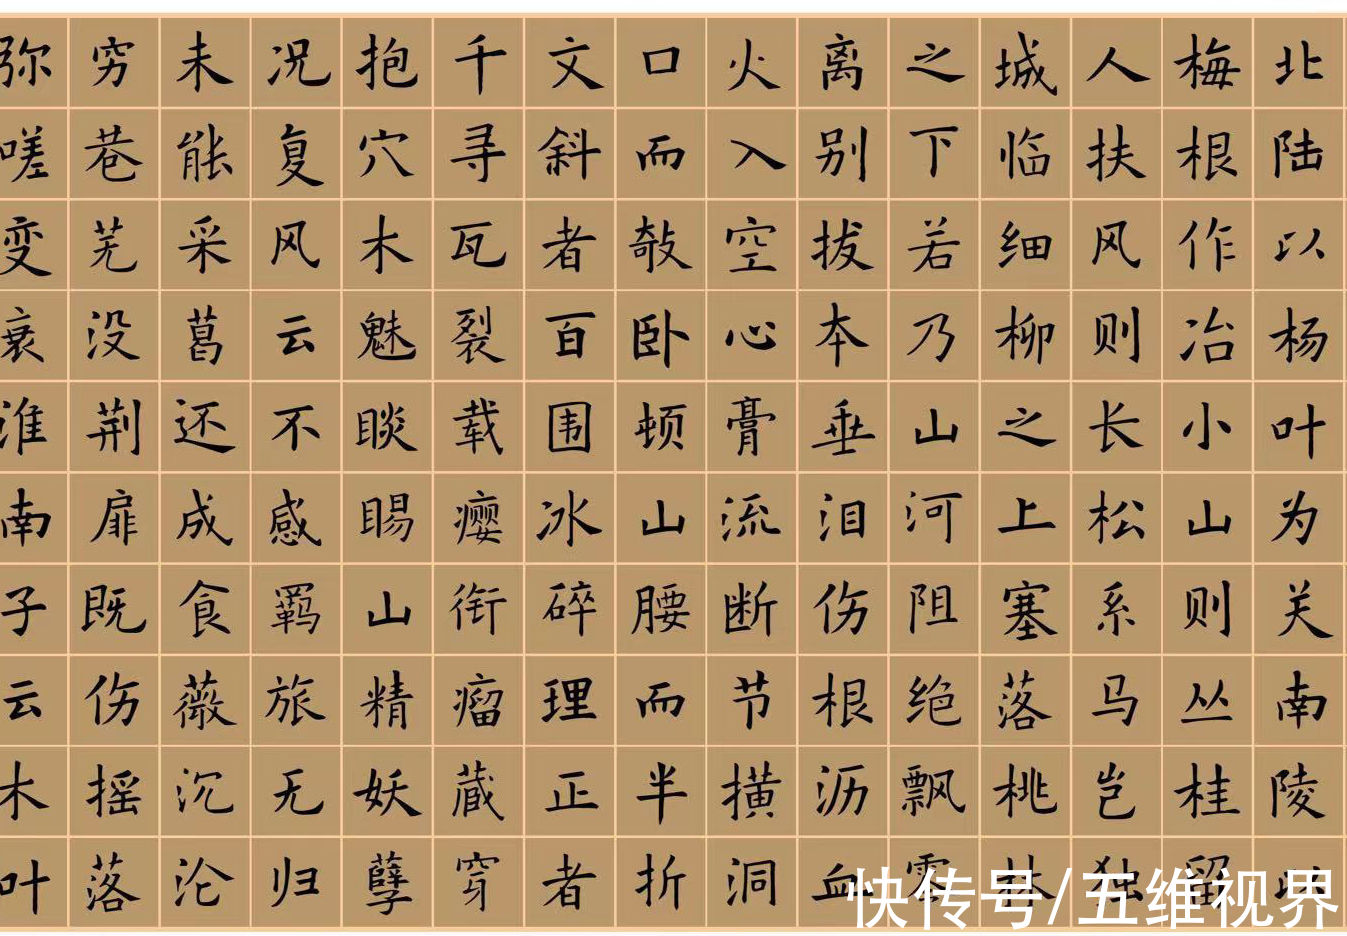 北陆以杨叶为关南陵以
梅根作冶小山则丛桂留
人扶风则长松系马岂独
城临细柳之上塞落桃林
之下若乃山河阻绝飘零
离别拔本垂泪伤根沥血
火入空心膏流断节横洞
口而敧卧顿山腰而半折
文斜者百围冰碎理正者
千寻瓦裂载瘿衔瘤藏穿
抱穴木魅睒睗山精妖孽
况复风云不感羁旅无归
未能采葛还成食薇沉沦
穷巷芜没荆扉既伤摇落
弥嗟变衰淮南子云木叶
快传号/五维视界